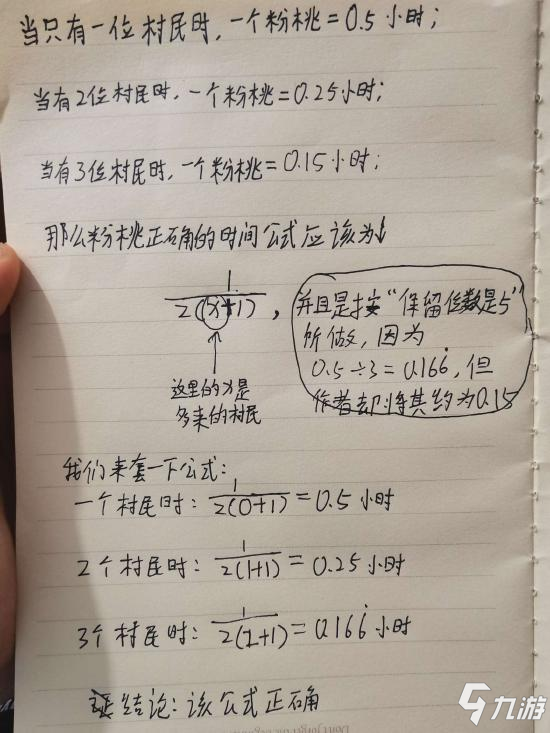 当只有一位村民时，一个粉桃=0.5小时；
当有2位村民时，一个粉桃=0.25小时；
当有3位村民时，一个粉桃=0.15小时；
那么粉桃正确的时间公式应该为↓
1
2(x+1)
，
并且是按“保留位数是5”
所做，因为
0.5÷3=0.166̇，但
作者却将其约为0.15
这里的x是
多来的村民
我们来套一下公式：
一个村民时：1/2(0+1)=0.5小时
2个村民时：1/2(1+1)=0.25小时
3个村民时：1/2(2+1)=0.166̇小时
结论：该公式正确
九游